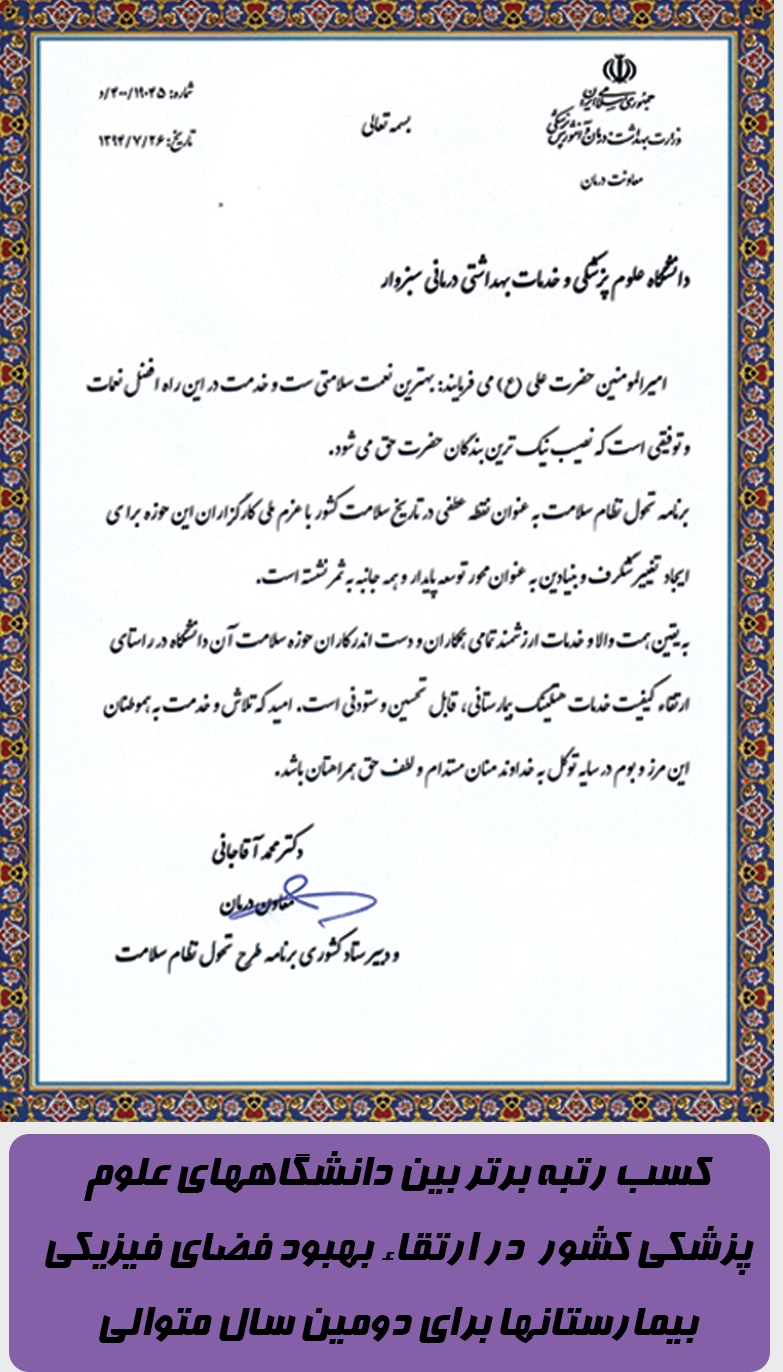 جمهوری اسلامی ایران
وزارت بهداشت، درمان و آموزش پزشکی
معاونت درمان
بسمه تعالی
شماره: ۴۰۰/۱۹۰۴۵/د
تاریخ: ۱۳۹۴/۷/۲۶
دانشگاه علوم پزشکی و خدمات بهداشتی درمانی سبزوار
امیرالمومنین حضرت علی (ع) می فرمایند: بهترین نعمت سلامتی ست و خدمت در این راه افضل نعمات
و توفیقی است که نصیب نیک ترین بندگان حضرت حق می شود.
برنامه تحول نظام سلامت به عنوان نقطه عطفی در تاریخ سلامت کشور با عزم ملی کارگزاران این حوزه برای
ایجاد تغییر شگرف و بنیادین به عنوان محور توسعه پایدار و همه جانبه به ثمر نشسته است.
به یقین همت والا و خدمات ارزشمند تمامی همکاران و دست اندرکاران حوزه سلامت آن دانشگاه در راستای
ارتقاء کیفیت خدمات هتلینگ بیمارستانی، قابل تحسین و ستودنی است. امید که تلاش و خدمت به هموطنان
این مرز و بوم در سایه توکل به خداوند منان مستدام و لطف حق همراهتان باشد.
دکتر محمد آقاجانی
معاون درمان
و دبیر ستاد کشوری برنامه طرح تحول نظام سلامت
کسب رتبه برتر بین دانشگاههای علوم
پزشکی کشور در ارتقاء بهبود فضای فیزیکی
بیمارستانها برای دومین سال متوالی